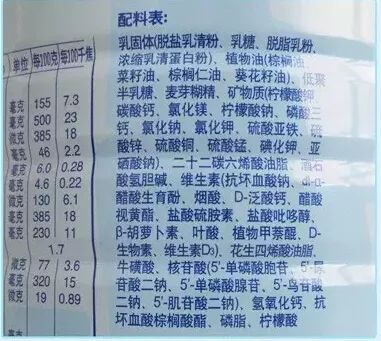 单位 每100克 每100千焦
毫克 155 7.3
毫克 500 23
微克 385 18
毫克 46 2.2
毫克 6.0 0.28
毫克 4.6 0.22
微克 130 6.1
毫克 385 18
毫克 230 11
1.7
微克 77 3.6
毫克 320 15
微克 19 0.89
配料表:
乳固体(脱盐乳清粉、乳糖、脱脂乳粉、
浓缩乳清蛋白粉)、植物油(棕榈油、
菜籽油、棕榈仁油、葵花籽油)、低聚
半乳糖、麦芽糊精、矿物质(柠檬酸钾
碳酸钙、氯化镁、柠檬酸钠、磷酸三
钙、氯化钠、氯化钾、硫酸亚铁、硫
酸锌、硫酸铜、硫酸锰、碘化钾、亚
硒酸钠)、二十二碳六烯酸油脂、酒石
酸氢胆碱、维生素(抗坏血酸钠、dl-α-
醋酸生育酚、烟酸、D-泛酸钙、醋酸
视黄酯、盐酸硫胺素、盐酸吡哆醇、
β-胡萝卜素、叶酸、植物甲萘醌、D-
生物素、维生素D₃)、花生四烯酸油脂、
牛磺酸、核苷酸(5'-单磷酸胞苷、5'-尿
苷酸二钠、5'-单磷酸腺苷、5'-鸟苷酸
二钠、5'-肌苷酸二钠)、氢氧化钙、抗
坏血酸棕榈酸酯、磷脂、柠檬酸